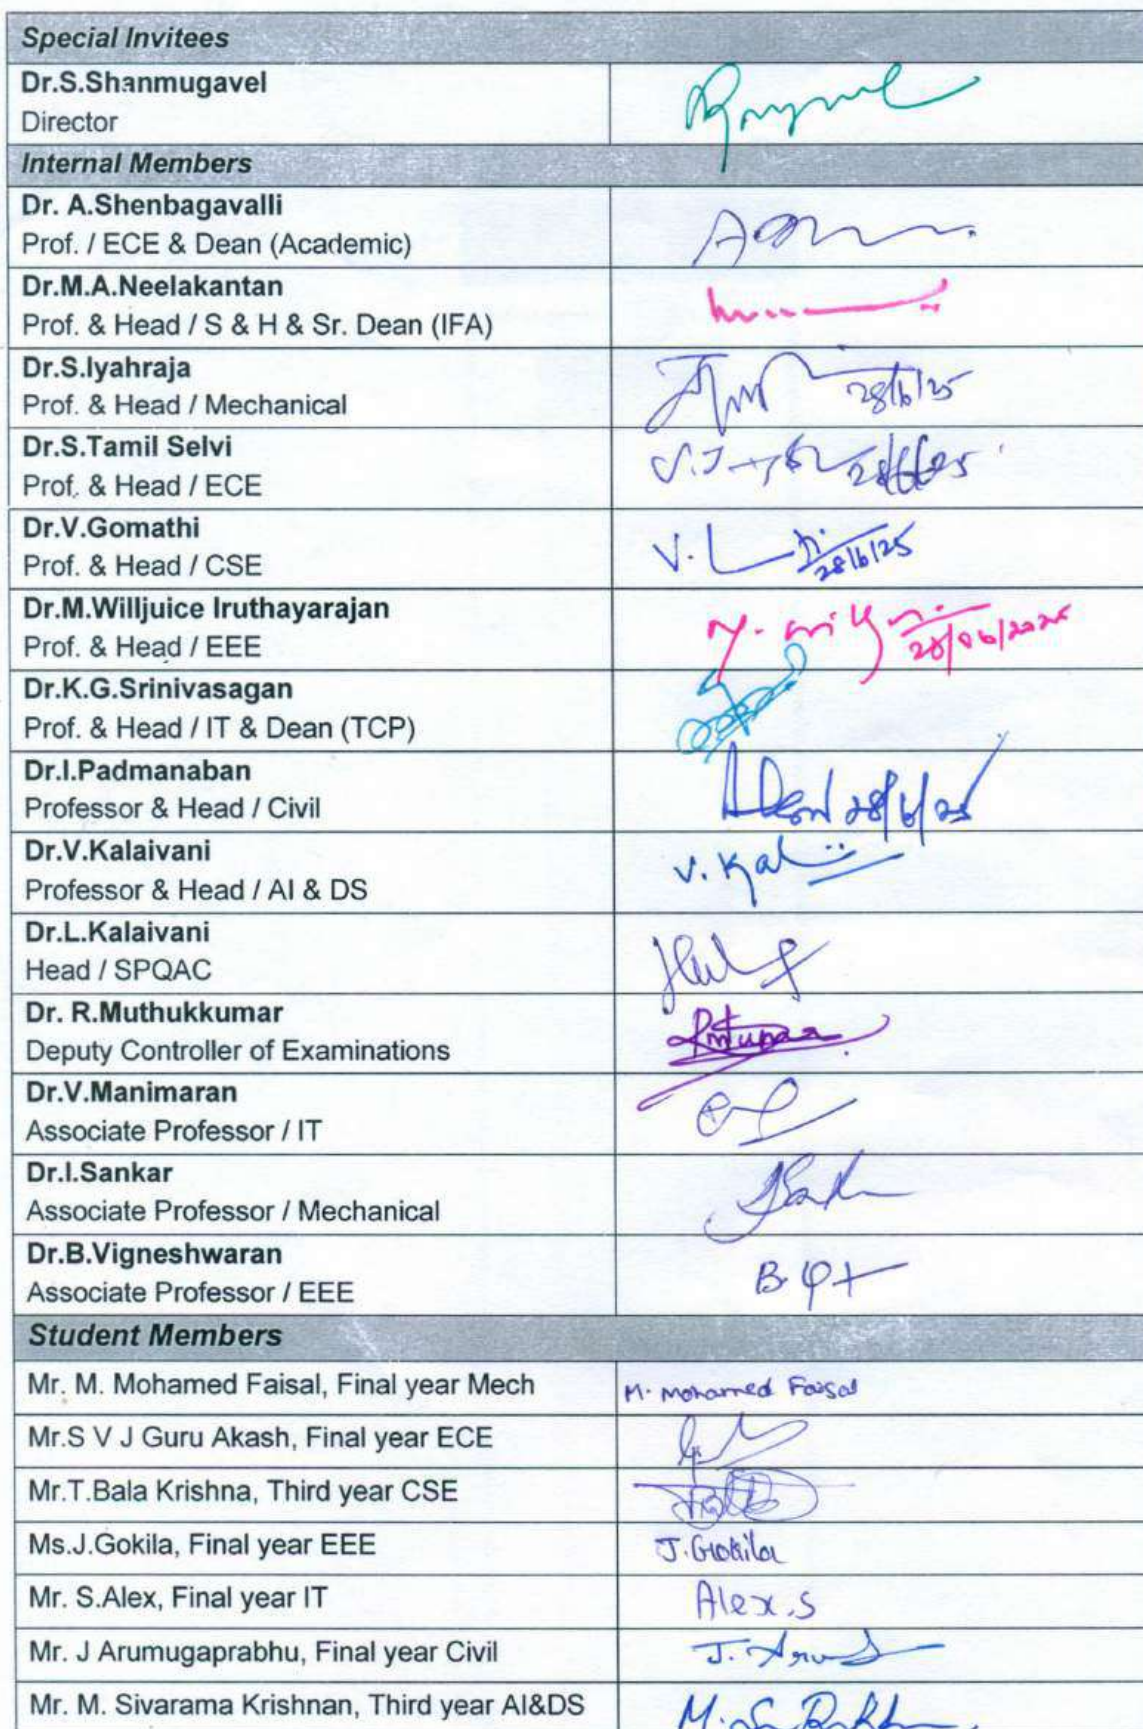 Special Invitees
Dr.S.Shanmugavel
Director
Internal Members
Dr. A.Shenbagavalli
Prof. / ECE & Dean (Academic)
Dr.M.A.Neelakantan
Prof. & Head / S & H & Sr. Dean (IFA)
Dr.S.Iyahraja
Prof. & Head / Mechanical
28/6/25
Dr.S.Tamil Selvi
Prof. & Head / ECE
28/6/25
Dr.V.Gomathi
Prof. & Head / CSE
28/6/25
Dr.M.Willjuice Iruthayarajan
Prof. & Head / EEE
28/06/2025
Dr.K.G.Srinivasagan
Prof. & Head / IT & Dean (TCP)
Dr.I.Padmanaban
Professor & Head / Civil
28/6/25
Dr.V.Kalaivani
Professor & Head / AI & DS
Dr.L.Kalaivani
Head / SPQAC
Dr. R.Muthukkumar
Deputy Controller of Examinations
Dr.V.Manimaran
Associate Professor / IT
Dr.I.Sankar
Associate Professor / Mechanical
Dr.B.Vigneshwaran
Associate Professor / EEE
Student Members
Mr. M. Mohamed Faisal, Final year Mech M. Mohamed Faisal
Mr.S V J Guru Akash, Final year ECE
Mr.T.Bala Krishna, Third year CSE
Ms.J.Gokila, Final year EEE J.Gokila
Mr. S.Alex, Final year IT Alex.S
Mr. J Arumugaprabhu, Final year Civil
Mr. M. Sivarama Krishnan, Third year AI&DS